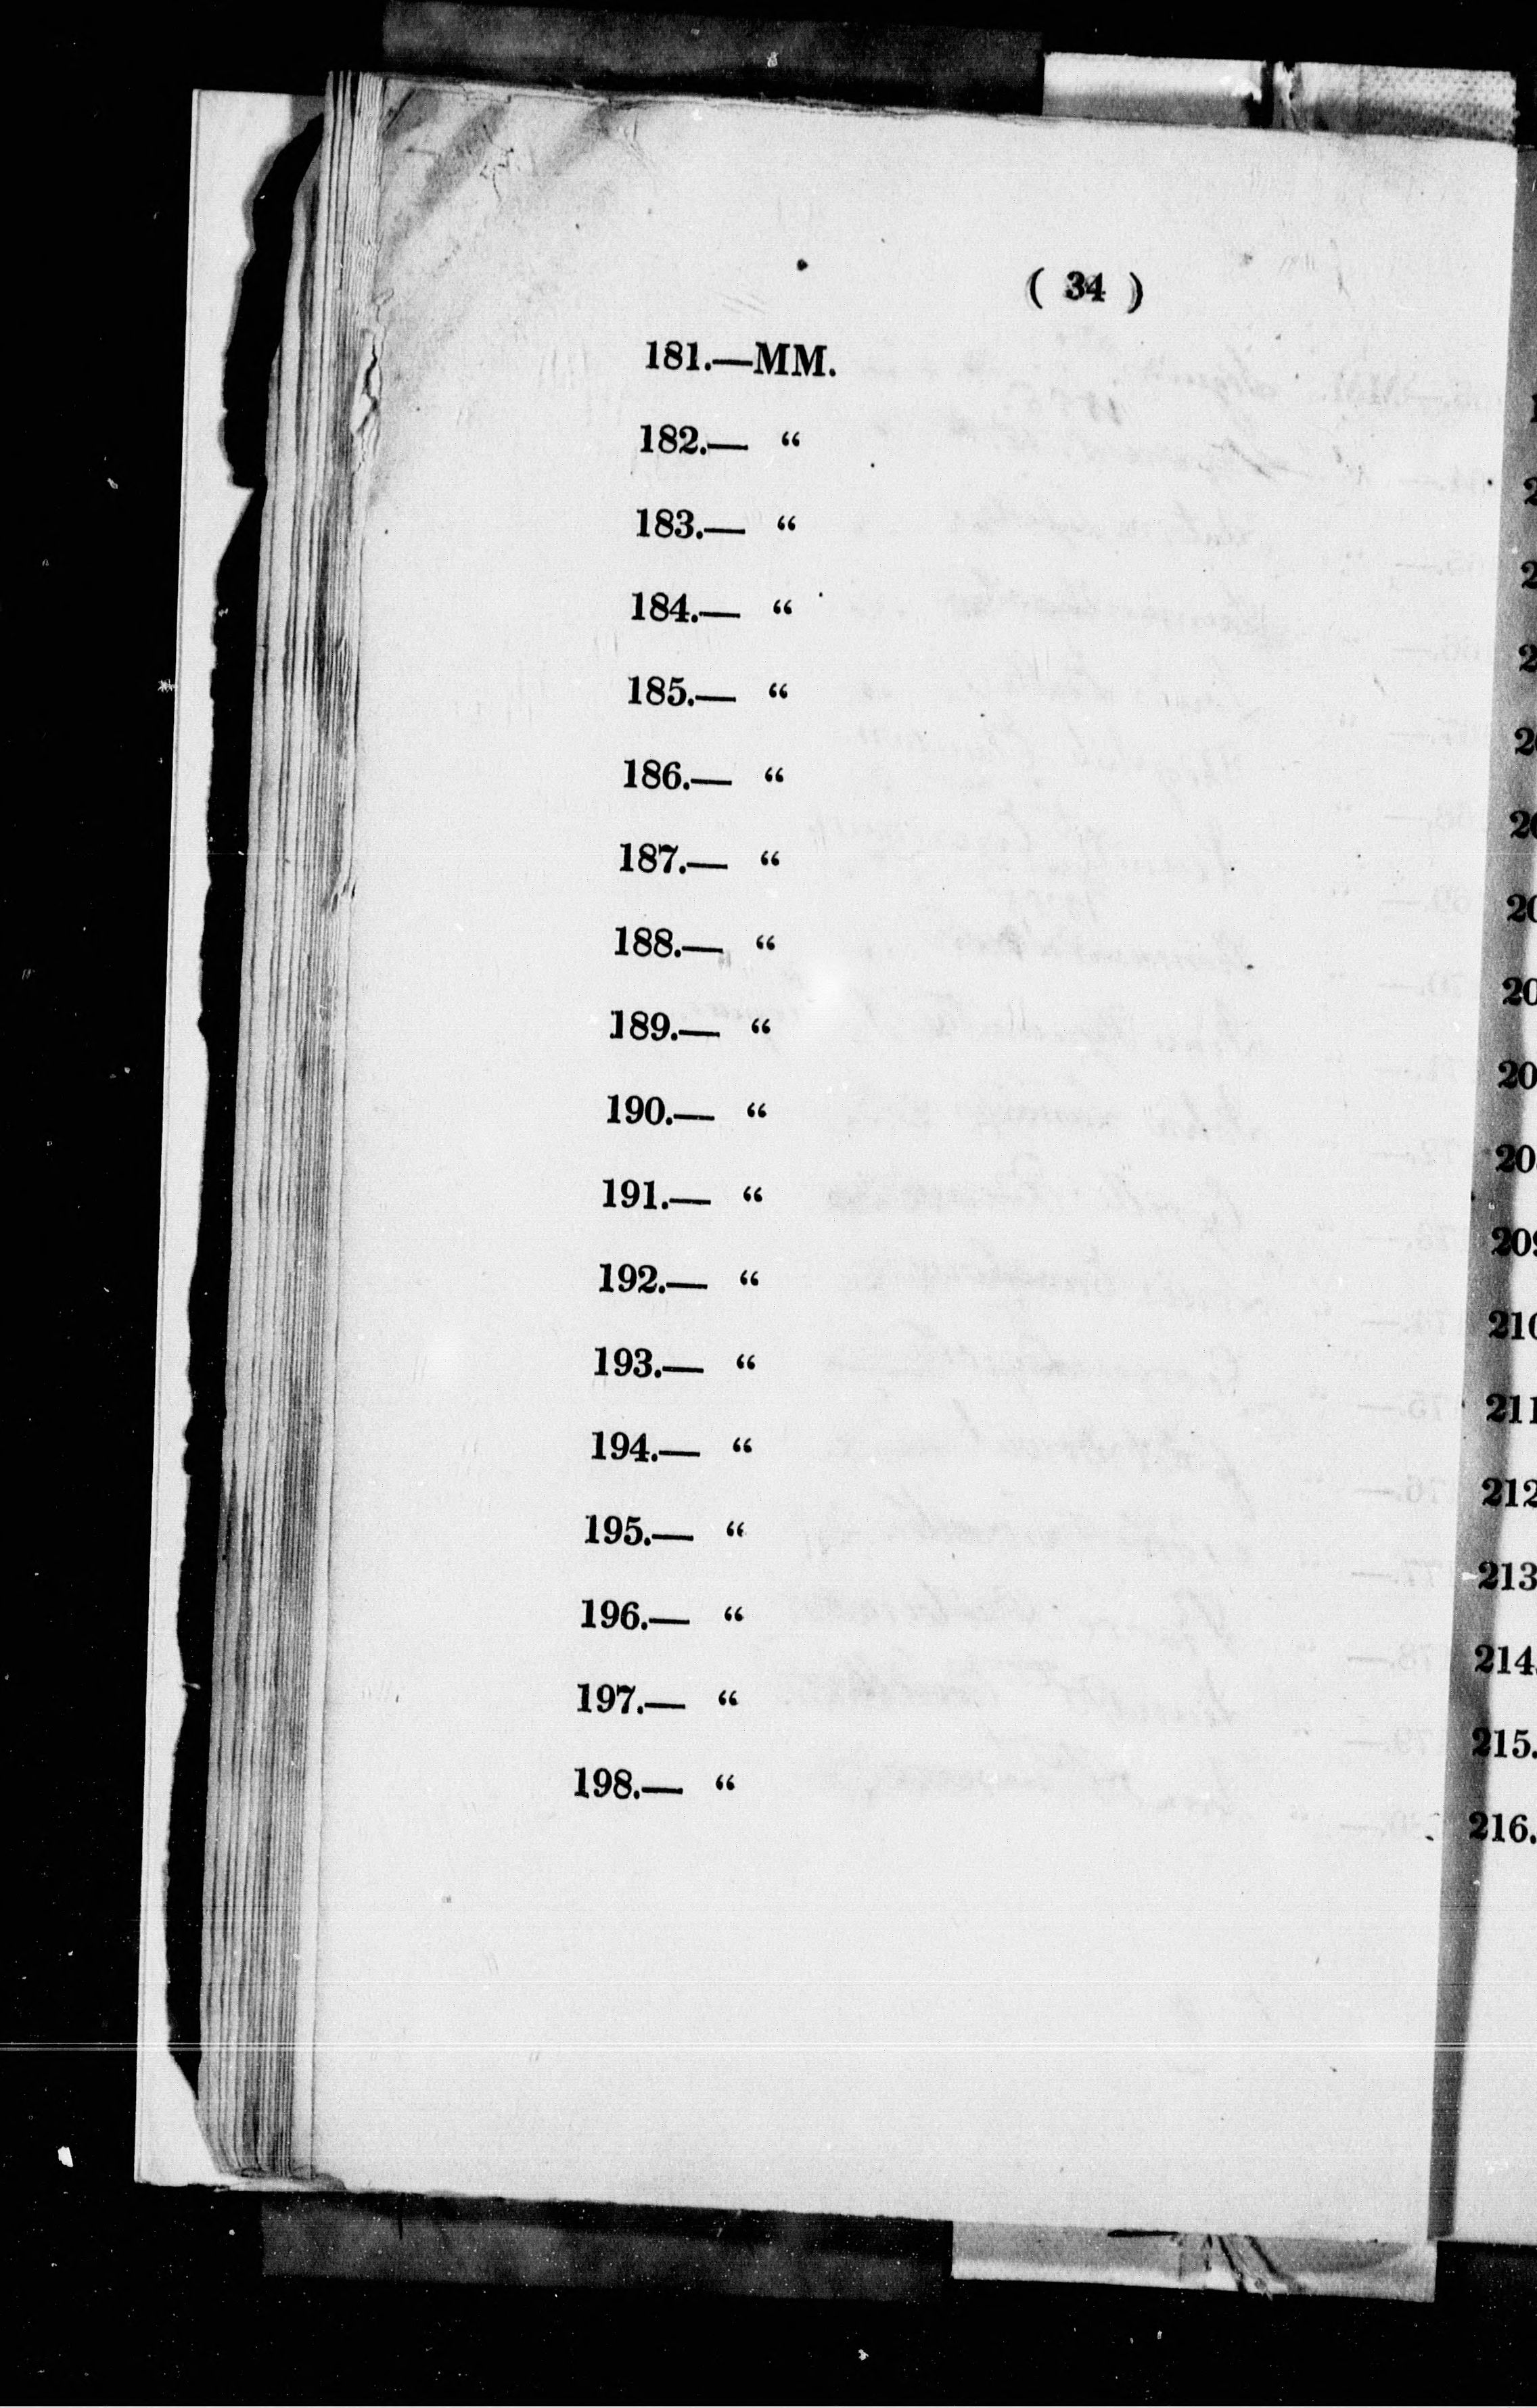 ( 34 )
181.—MM.
182.— “
183.— “
184.— “
185.— “
186.— “
187.— “
188.— “
189.— “
190.— “
191.— “
192.— “
193.— “
194.— “
195.— “
196.— “
197.— “
198.— “
209
210
211
212
213
214.
215.
216.